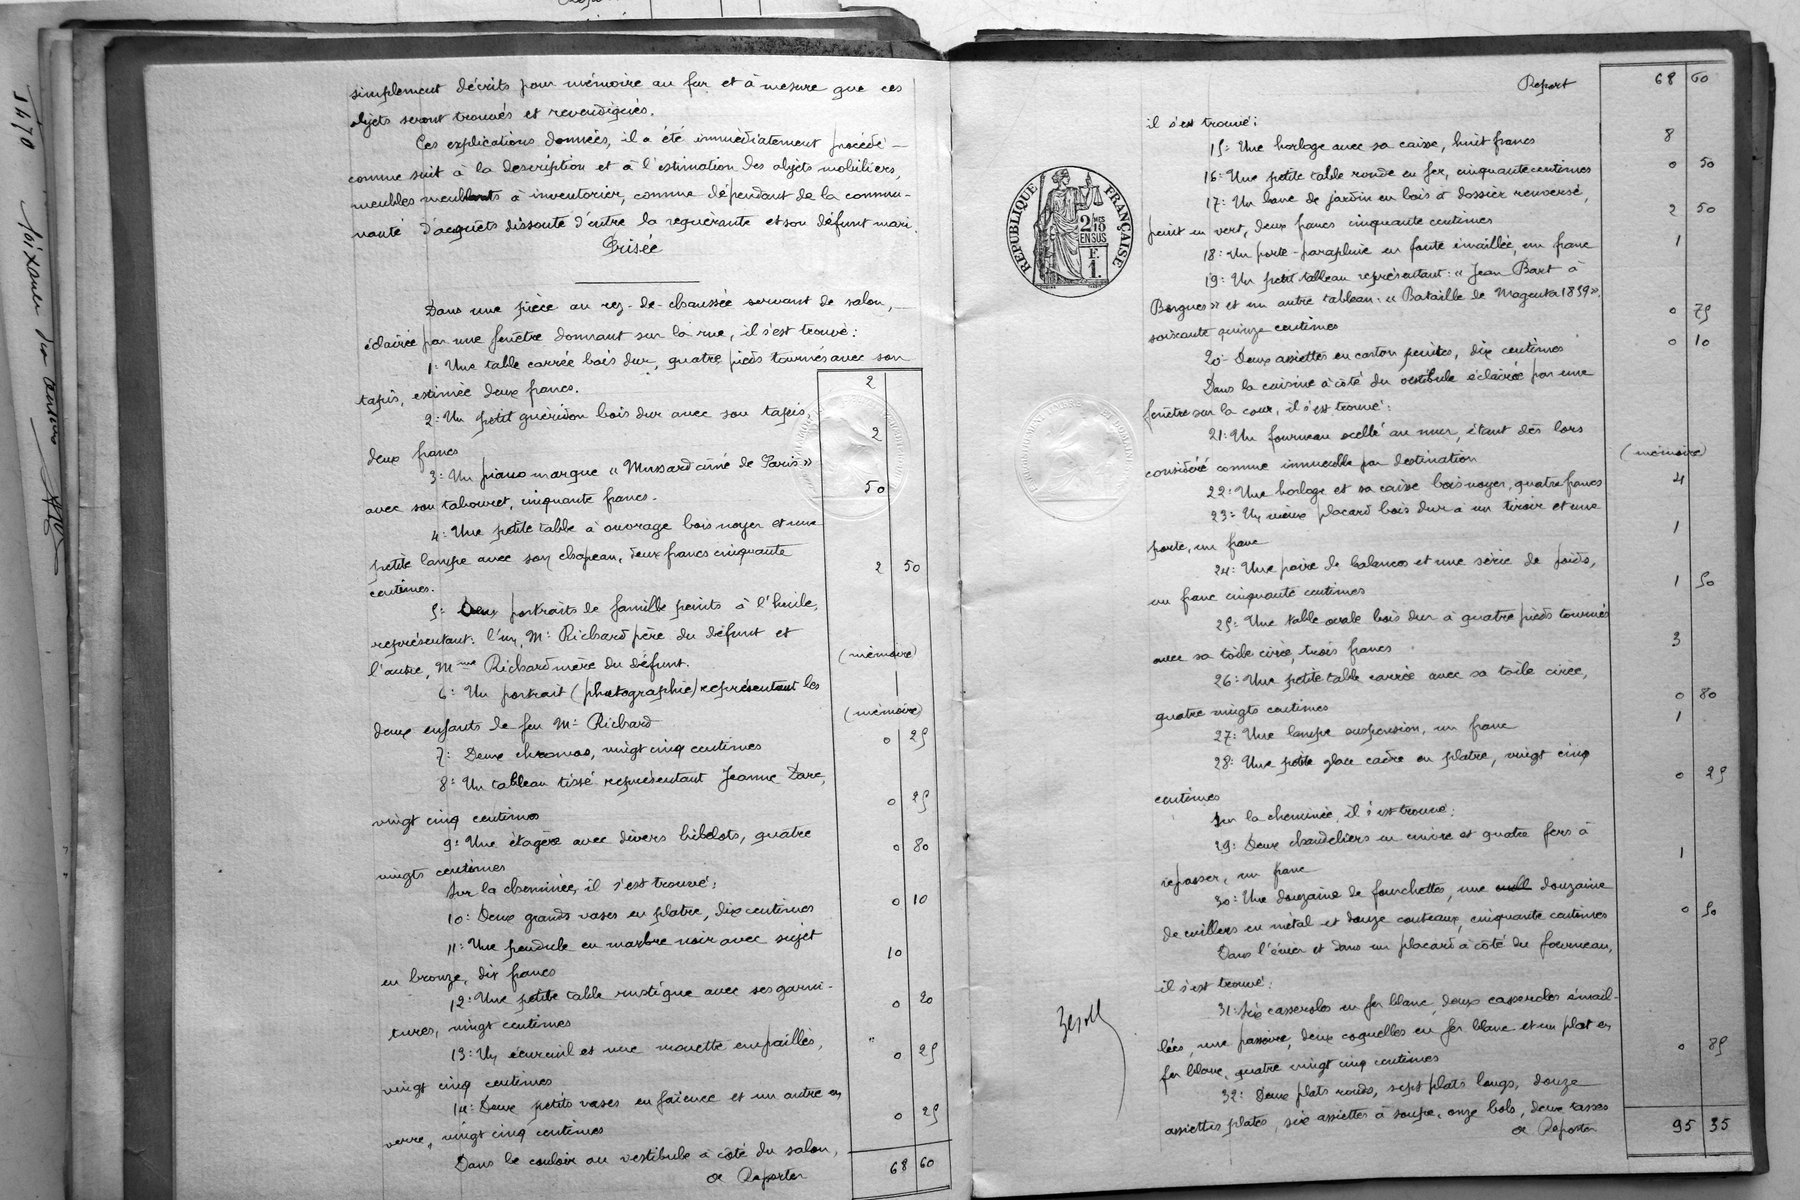 simplement décrits pour mémoire au fur et à mesure que ces
objets seront trouvés et revendiqués.
Ces explications données, il a été immédiatement procédé —
comme suit à la description et à l'estimation des objets mobiliers,
meubles meublants à inventorier, comme dépendant de la commu-
nauté d'acquêts dissoute d'entre la requérante et son défunt mari.
Prisée
Dans une pièce au rez-de-chaussée servant de salon, —
éclairée par une fenêtre donnant sur la rue, il s'est trouvé:
1: Une table carrée bois dur, quatre pieds tournés avec son
tapis, estimée deux francs. 2
2: Un petit guéridon bois dur avec son tapis,
deux francs 2
3: Un piano marque « Mussard ainé de Paris »
avec son tabouret, cinquante francs. 50
4: Une petite table à ouvrage bois noyer et une
petite lampe avec son chapeau, deux francs cinquante
centimes. 2 50
5: Deux portraits de famille peints à l'huile,
représentant: l'un, Mr Richard père du défunt et
l'autre, Mme Richard mère du défunt. (mémoire)
6: Un portrait (photographie) représentant les
deux enfants de feu Mr Richard (mémoire)
7: Deux chromos, vingt cinq centimes 0 25
8: Un tableau tissé représentant Jeanne Darc,
vingt cinq centimes 0 25
9: Une étagère avec divers bibelots, quatre
vingts centimes 0 80
Sur la cheminée, il s'est trouvé:
10: Deux grands vases en platre, dix centimes 0 10
11: Une pendule en marbre noir avec sujet
en bronze, dix francs 10
12: Une petite table rustique avec ses garni-
tures, vingt centimes 0 20
13: Un écureuil et une mouette empaillés,
vingt cinq centimes 0 25
14: Deux petits vases en faïence et un autre en
verre, vingt cinq centimes 0 25
Dans le couloir ou vestibule à côté du salon,
à Reporter 68 60
Report 68 60
il s'est trouvé:
15: Une horloge avec sa caisse, huit francs 8
16: Une petite table ronde en fer, cinquante centimes 0 50
17: Un banc de jardin en bois à dossier renversé,
peint en vert, deux francs cinquante centimes 2 50
18: Un porte-parapluie en fonte émaillée, un franc 1
19: Un petit tableau représentant: « Jean Bart à
Bergues » et un autre tableau: « Bataille de Magenta 1859 »,
soixante quinze centimes 0 75
20- Deux assiettes en carton peintes, dix centimes 0 10
Dans la cuisine à côté du vestibule éclairée par une
fenêtre sur la cour, il s'est trouvé:
21: Un fourneau scellé au mur, étant dès lors
considéré comme immeuble par destination (mémoire)
22: Une horloge et sa caisse bois noyer, quatre francs 4
23: Un vieux placard bois dur à un tiroir et une
porte, un franc 1
24: Une paire de balances et une série de poids,
un franc cinquante centimes 1 50
25: Une table ovale bois dur à quatre pieds tournés
avec sa toile cirée, trois francs 3
26: Une petite table carrée avec sa toile cirée,
quatre vingts centimes 0 80
27: Une lampe suspension, un franc 1
28: Une petite glace cadre en platre, vingt cinq
centimes 0 25
Sur la cheminée, il s'est trouvé:
29: Deux chandeliers en cuivre et quatre fers à
repasser, un franc 1
30: Une douzaine de fourchettes, une douzaine
de cuillers en métal et douze couteaux, cinquante centimes 0 50
Dans l'évier et dans un placard à côté du fourneau,
il s'est trouvé:
31: Six casseroles en fer blanc, deux casseroles émail-
lées, une passoire, deux coquelles en fer blanc et un plat en
fer blanc, quatre vingt cinq centimes 0 85
32: Deux plats ronds, sept plats longs, douze
assiettes plates, six assiettes à soupe, onze bols, deux tasses
à Reporter 95 35
RÉPUBLIQUE FRANÇAISE
2/10 EN SUS
F.
1.